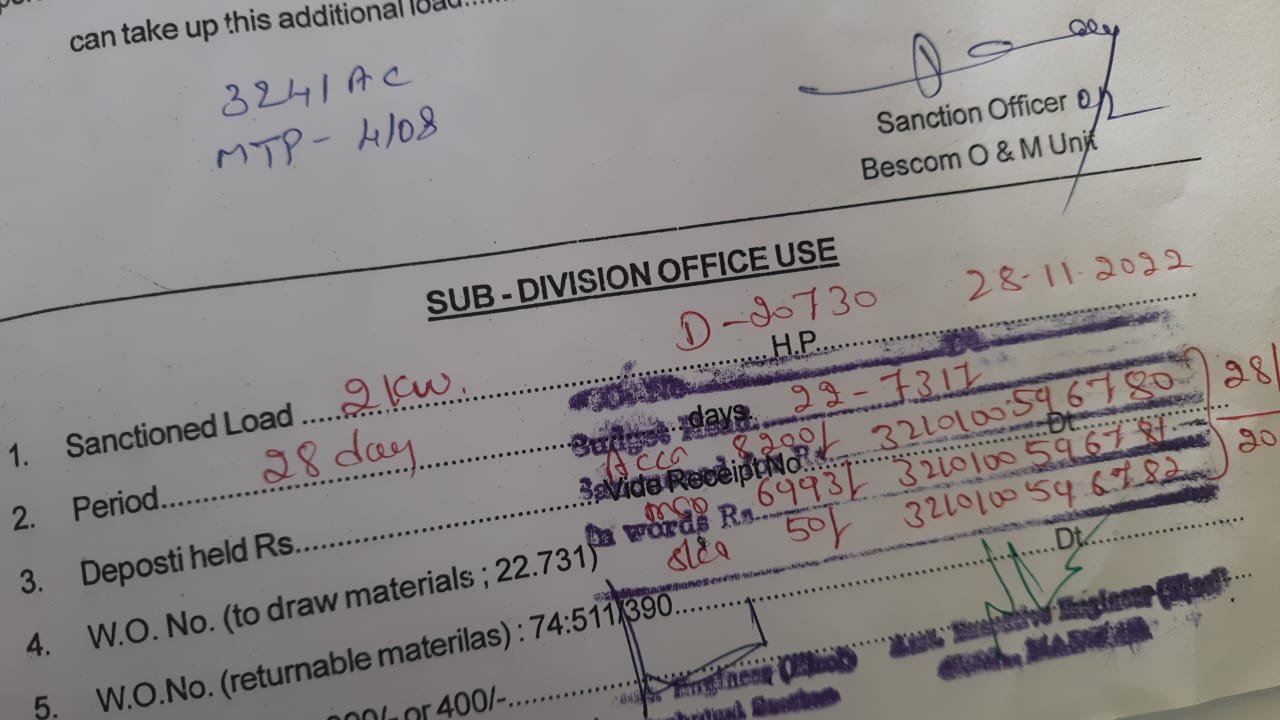 can take up this additional load......
3241 AC
MTP - 4/08
Sanction Officer
Bescom O & M Unit
SUB - DIVISION OFFICE USE
D - 20730 28-11-2022
1. Sanctioned Load ....2 KW. .... H.P....
2. Period....28 day .... days. 22-7317
3. Deposti held Rs.... Vide Receipt No Dt
Acca 8200/- 321010059 6780 28/
MSD 3210100596781 20
In words Rs. 50/- 3210100596782
4. W.O. No. (to draw materials ; 22.731)
5. W.O.No. (returnable materilas) : 74:511/390.... Dt....
or 400/-....
Engineer (Elecl)
Executive Engineer (Elecl)